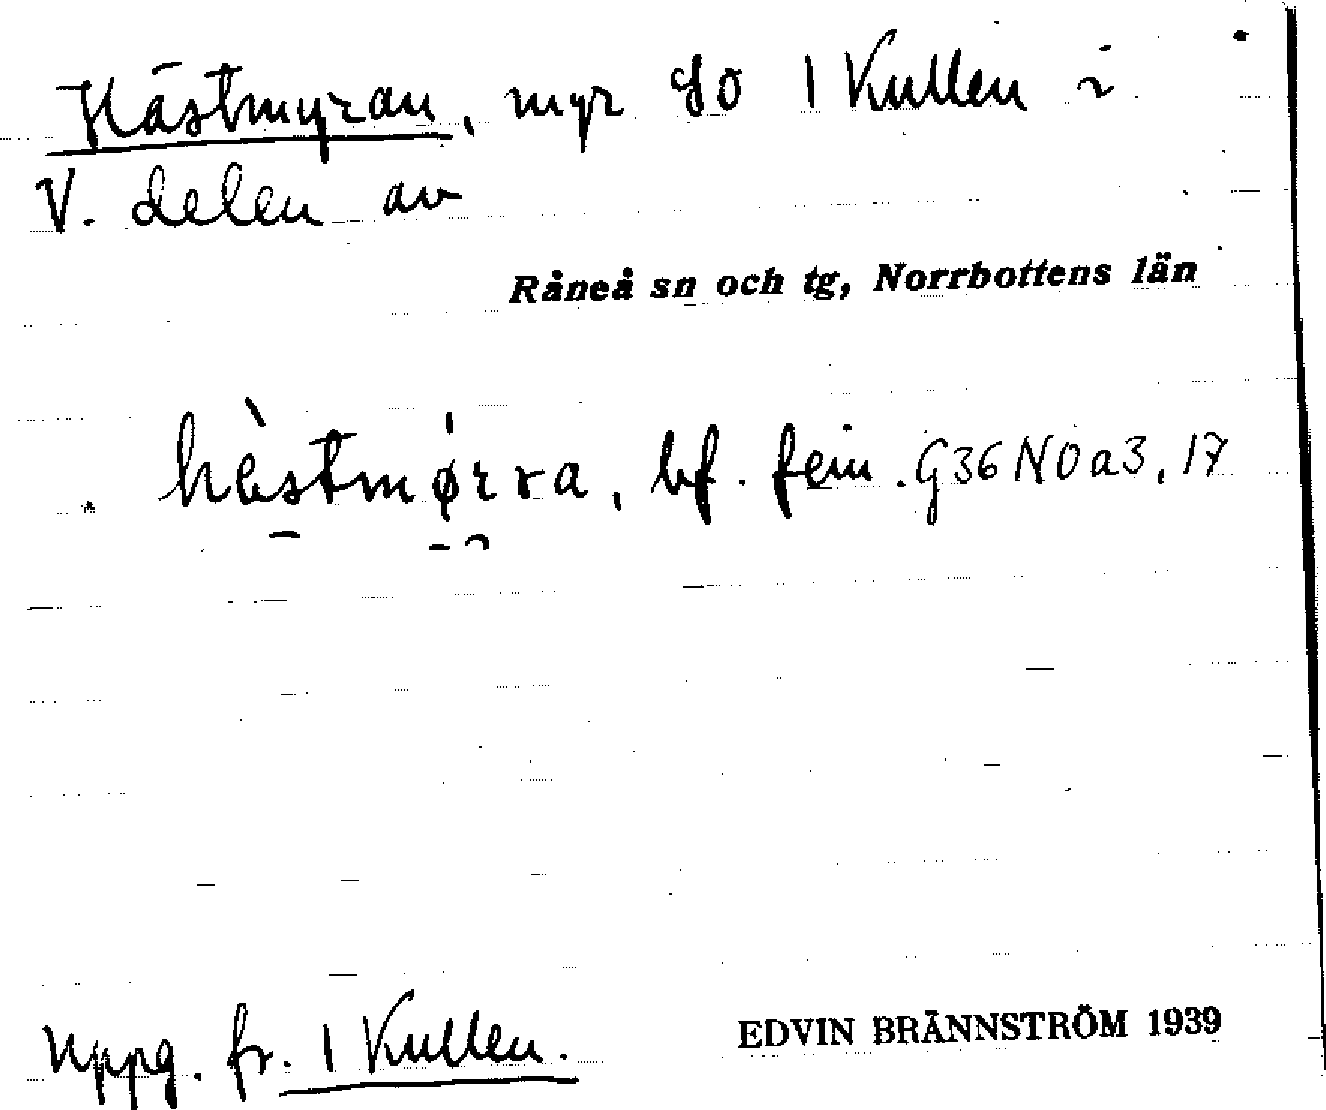 Hästmyran, myr SO 1 Kullen i
V. delen av
Råneå sn och tg, Norrbottens län
hæ̀stmørra, bf. fem. G36NOa3,17
Uppg. fr. 1 Kullen.
EDVIN BRÄNNSTRÖM 1939